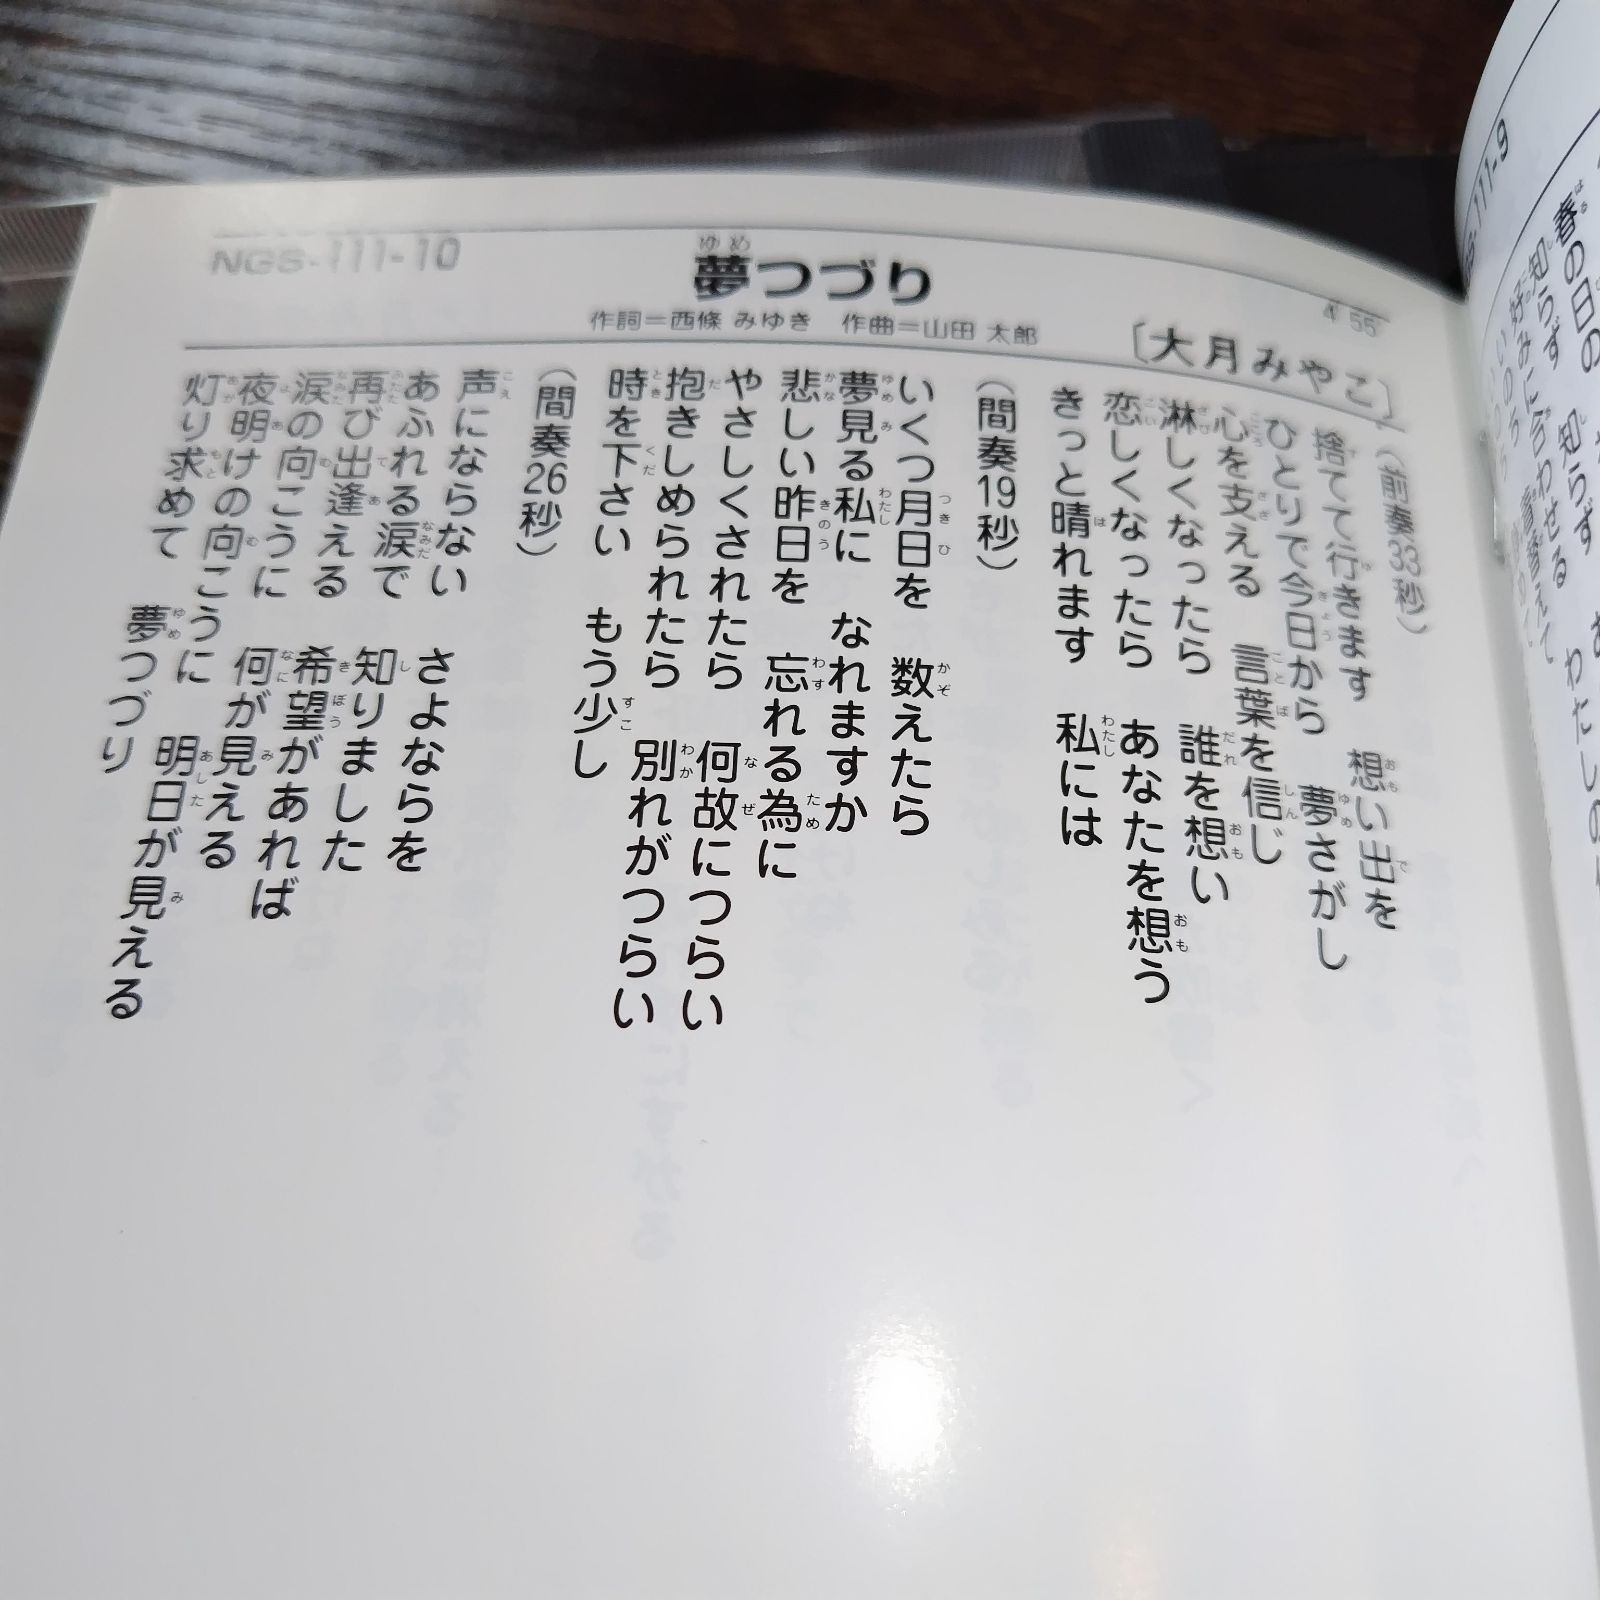 NGS-111-10
夢つづり
ゆめ
作詞=西條 みゆき 作曲=山田 太郎
4'55"
〔大月みやこ〕
(前奏33秒)
捨てて行きます 想い出を
ひとりで今日から 夢さがし
心を支える 言葉を信じ
淋しくなったら 誰を想い
恋しくなったら あなたを想う
きっと晴れます 私には
(間奏19秒)
いくつ月日を 数えたら
夢見る私に なれますか
悲しい昨日を 忘れる為に
やさしくされたら 何故につらい
抱きしめられたら 別れがつらい
時を下さい もう少し
(間奏26秒)
声にならない さよならを
あふれる涙で 知りました
再び出逢える 希望があれば
涙の向こうに 何が見える
夜明けの向こうに 明日が見える
灯り求めて 夢つづり
-111-9
春の日の
知らず 知らず
好みに合わせる 着替えて
わたしの